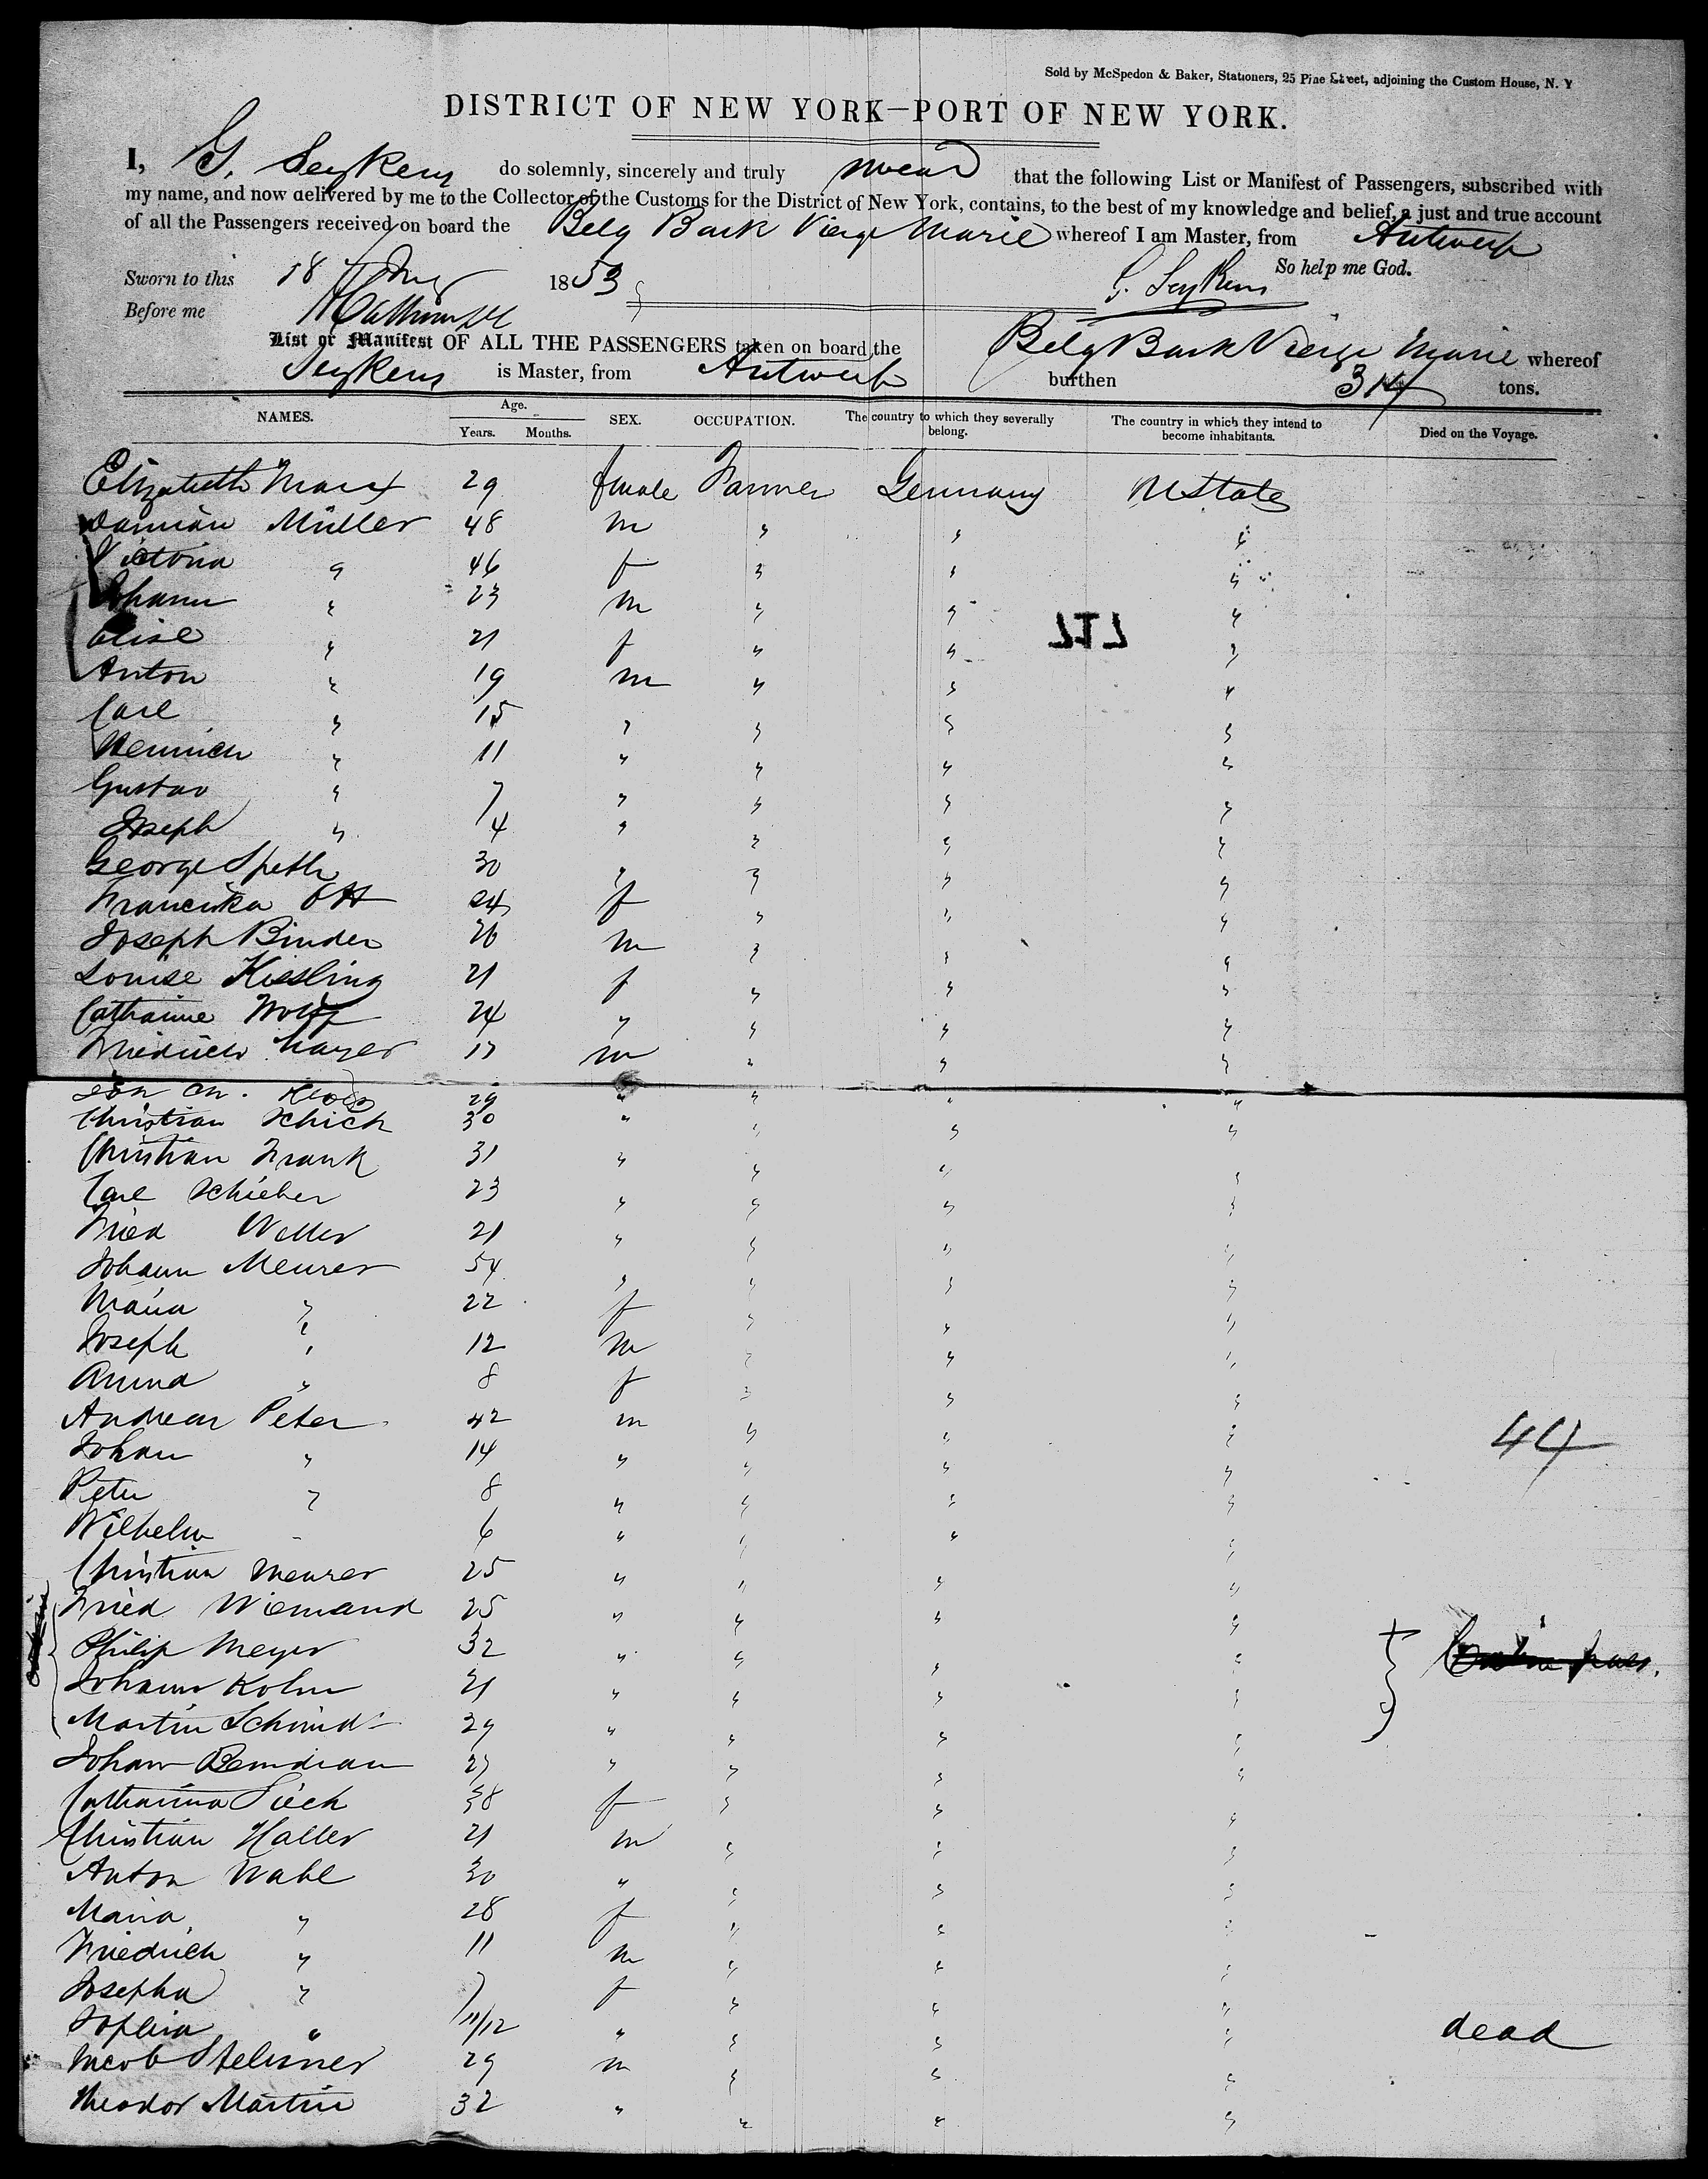 Sold by McSpedon & Baker, Stationers, 25 Pine Street, adjoining the Custom House, N. Y
DISTRICT OF NEW YORK—PORT OF NEW YORK.
I, G. Seykens do solemnly, sincerely and truly swear that the following List or Manifest of Passengers, subscribed with
my name, and now delivered by me to the Collector of the Customs for the District of New York, contains, to the best of my knowledge and belief, a just and true account
of all the Passengers received on board the Belg Bark Vierge Marie whereof I am Master, from Antwerp
So help me God.
Sworn to this 18 1853 G. Seykens
Before me
List or Manifest OF ALL THE PASSENGERS taken on board the Belg Bark Vierge Marie whereof
Seykens is Master, from Antwerp burthen 314 tons.
NAMES. Age. Years. Months. SEX. OCCUPATION. The country to which they severally belong. The country in which they intend to become inhabitants. Died on the Voyage.
Elizabeth Marx 29 female Farmer Germany UState
Damian Müller 48 m " " "
Victoria " 46 f " " "
Johann " 23 m " " "
Elise " 21 f " " "
LTL
Anton " 19 m " " "
Carl " 15 " " " "
Heinrich " 11 " " " "
Gustav " 7 " " " "
Joseph " 4 " " " "
George Speth 30 " " " "
Franciska Ott 24 f " " "
Joseph Binder 26 m " " "
Louise Kiesling 21 f " " "
Catharine Wolff 24 " " " "
Friedrich Mayer 17 m " " "
29 " " " "
Christian Schick 30 " " " "
Christian Frank 31 " " " "
Carl Schieber 23 " " " "
Fried Weller 21 " " " "
Johann Meurer 54 " " " "
Maria " 22 f " " "
Joseph " 12 m " " "
Anna " 8 f " " "
Andreas Peter 42 m " " "
44
Johan " 14 " " " "
Peter " 8 " " " "
Wilhelm " 6 " " " "
Christian Meurer 25 " " " "
Fried Wiemand 25 " " " "
Philip Meyer 32 " " " "
Johann Kohn 21 " " " "
Martin Schmidt 29 " " " "
Johann 27 " " " "
Catharina 38 f " " "
Christian Haller 21 m " " "
Anton Wahl 30 " " " "
Maria " 28 f " " "
Friedrich " 11 m " " "
Josepha " 7 f " " "
Sophia " 11/12 " " " " dead
Jacob 29 m " " "
Theodor Martin 32 " " " "